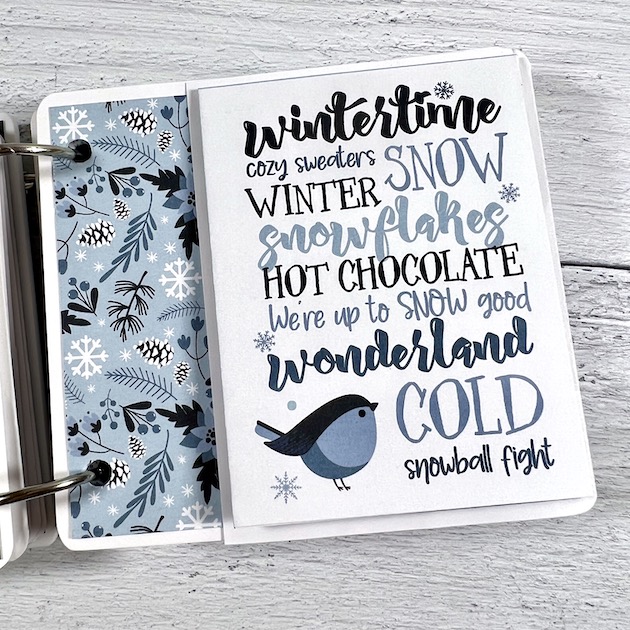 wintertime
cozy sweaters SNOW
WINTER
snowflakes
HOT CHOCOLATE
We're up to SNOW good
wonderland
COLD
snowball fight